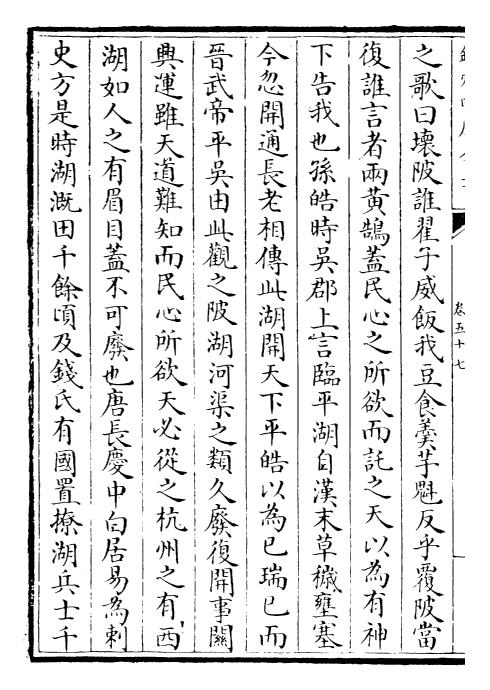 之歌曰壊陂誰翟子威飯我豆食羮芋魁反乎覆陂當
復誰言者兩黄鵠蓋民心之所欲而託之天以為有神
下告我也孫皓時吴郡上言臨平湖自漢末草穢壅塞
今忽開通長老相傳此湖開天下平皓以為己瑞已而
晉武帝平吴由此觀之陂湖河渠之類久廢復開事關
興運雖天道難知而民心所欲天必從之杭州之有西
湖如人之有眉目蓋不可廢也唐長慶中白居易為刺
史方是時湖溉田千餘頃及錢氏有國置撩湖兵士千
卷五十七